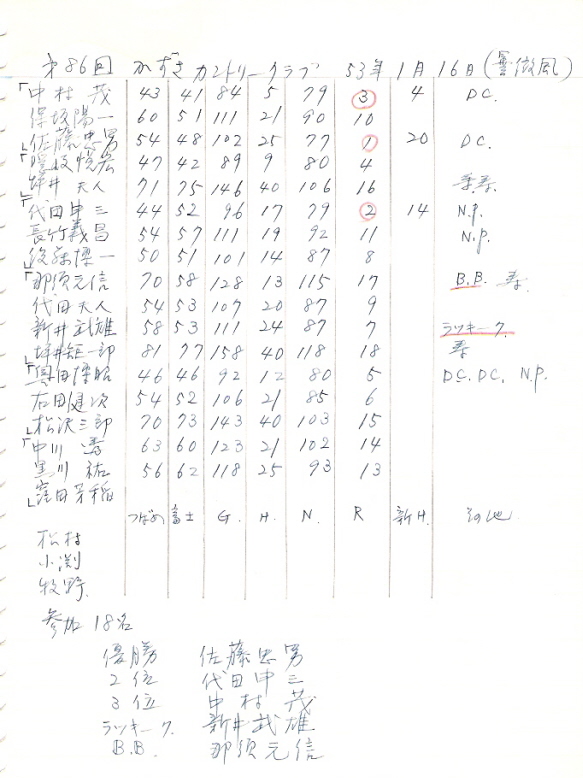 第86回 かずさカントリークラブ 53年1月16日(曇微風)
「中村 茂 43 41 84 5 79 ③ 4 D.C.
保坂陽一 60 51 111 21 90 10
佐藤忠男 54 48 102 25 77 ① 20 D.C.
「 47 42 89 9 80 4
坪井夫人 71 75 146 40 106 16 寿.寿.
「代田申三 44 52 96 17 79 ② 14 N.P.
長竹義昌 54 57 111 19 92 11 N.P.
後藤博一 50 51 101 14 87 8
「那須元信 70 58 128 13 115 17 B.B. 寿.
代田夫人 54 53 107 20 87 9
新井武雄 58 53 111 24 87 7 ラッキー7.
坪井矩一郎 81 77 158 40 118 18 寿
「奥田博昭 46 46 92 12 80 5 D.C. D.C. N.P.
右田健次 54 52 106 21 85 6
松沢三郎 70 73 143 40 103 15
「中川 寿 63 60 123 21 102 14
黒川 祐 56 62 118 25 93 13
窪田芳稲
つばめ 富士 G. H. N. R 新H. その他
松村
小渕
牧野.
参加 18名
優勝 佐藤忠男
2位 代田申三
3位 中村茂
ラッキー7. 新井武雄
B.B. 那須元信